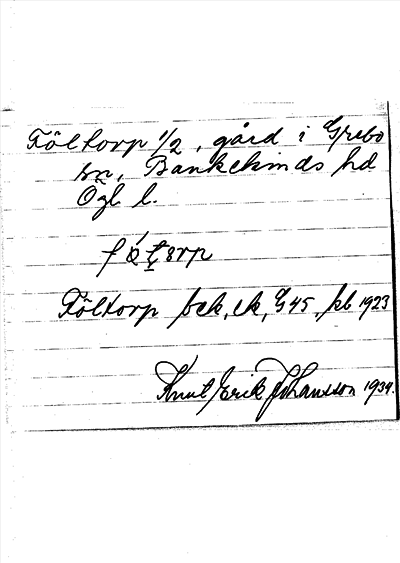 Föltorp 1/2, gård i Grebo
sn, Bankekinds hd
Ögl l.
Föltorp bek, ek, G45, kb 1923
Knut Erik Johansson 1934.